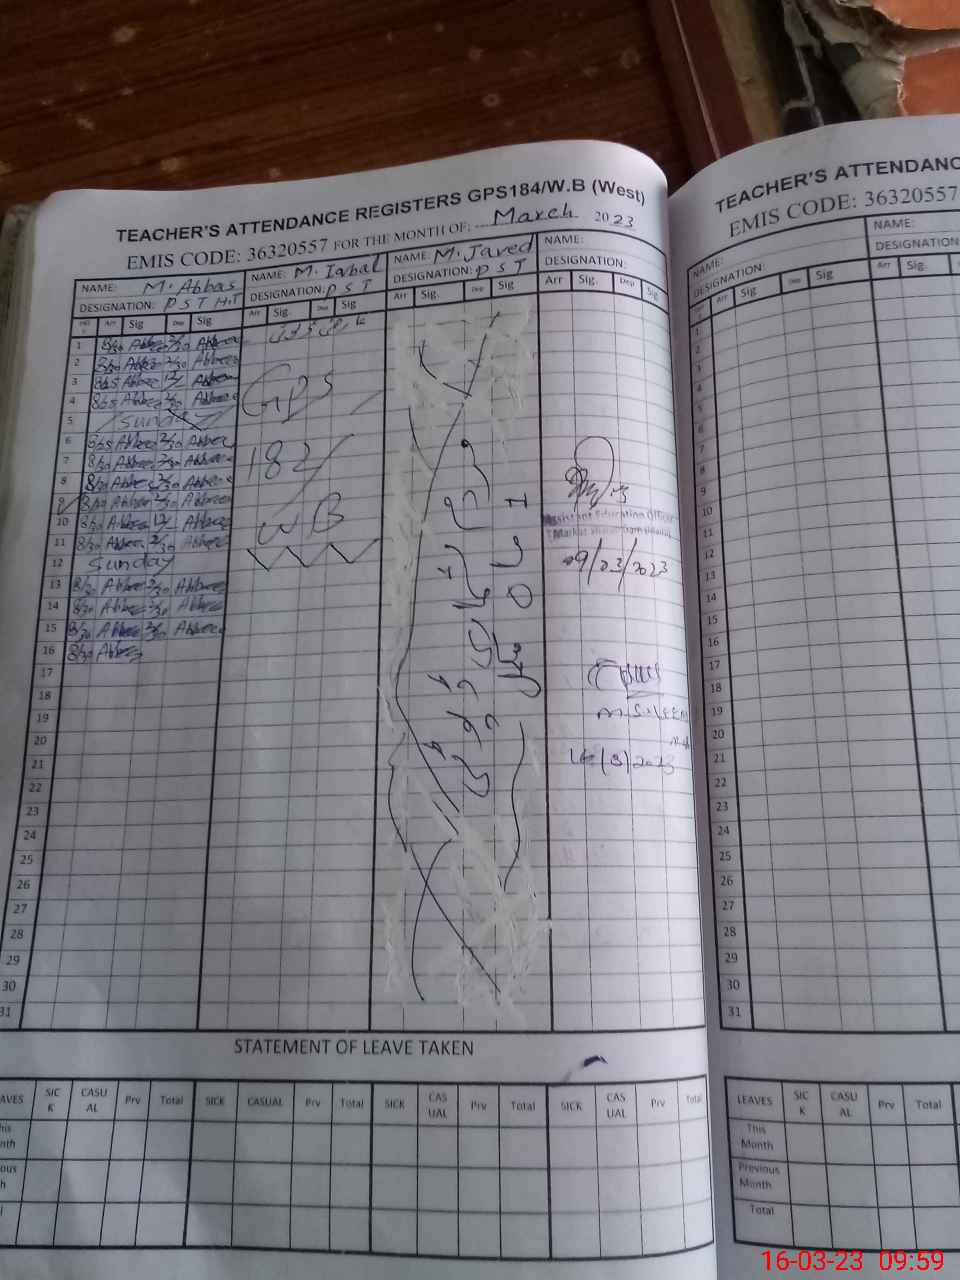 TEACHER'S ATTENDANCE REGISTERS GPS184/W.B (West)
EMIS CODE: 36320557 FOR THE MONTH OF: March 2023
NAME: M. Abbas NAME: M. Iqbal NAME: M. Javed NAME:
DESIGNATION: PST H.T DESIGNATION: PST DESIGNATION: PST DESIGNATION:
Arr Sig Dep Sig Arr Sig. Dep Sig Arr Sig. Dep Sig Arr Sig. Dep Sig
1 8/30 Abbas 2/30 Abbas
2 8/30 Abbas 2/30 Abbas
3 8/25 Abbas 12/ Abbas
4 8/25 Abbas 2/30 Abbas
5 Sunday
6 8/25 Abbas 2/30 Abbas
7 8/30 Abbas 2/30 Abbas
8 8/30 Abbas 2/30 Abbas
9 8/30 Abbas 2/30 Abbas
10 8/30 Abbas 12/ Abbas
11 8/30 Abbas 2/30 Abbas
12 Sunday
13 8/30 Abbas 2/30 Abbas
14 8/30 Abbas 2/30 Abbas
15 8/30 Abbas 2/30 Abbas
16 8/30 Abbas
17
18
19
20
21
22
23
24
25
26
27
28
29
30
31
GPS
182/
WB
Assistant Education Officer
09/03/2023
M. Saleem
16/3/2023
STATEMENT OF LEAVE TAKEN
SICK CASUAL Prv Total SICK CASUAL Prv Total SICK CASUAL Prv Total SICK CASUAL Prv Total
This Month
TEACHER'S ATTENDANC
EMIS CODE: 36320557
NAME: NAME:
DESIGNATION: DESIGNATION
Arr Sig Dep Sig Arr Sig.
1
2
3
4
5
6
7
8
9
10
11
12
13
14
15
16
17
18
19
20
21
22
23
24
25
26
27
28
29
30
31
LEAVES SICK CASUAL Prv Total
This Month
Previous Month
Total
16-03-23 09:59